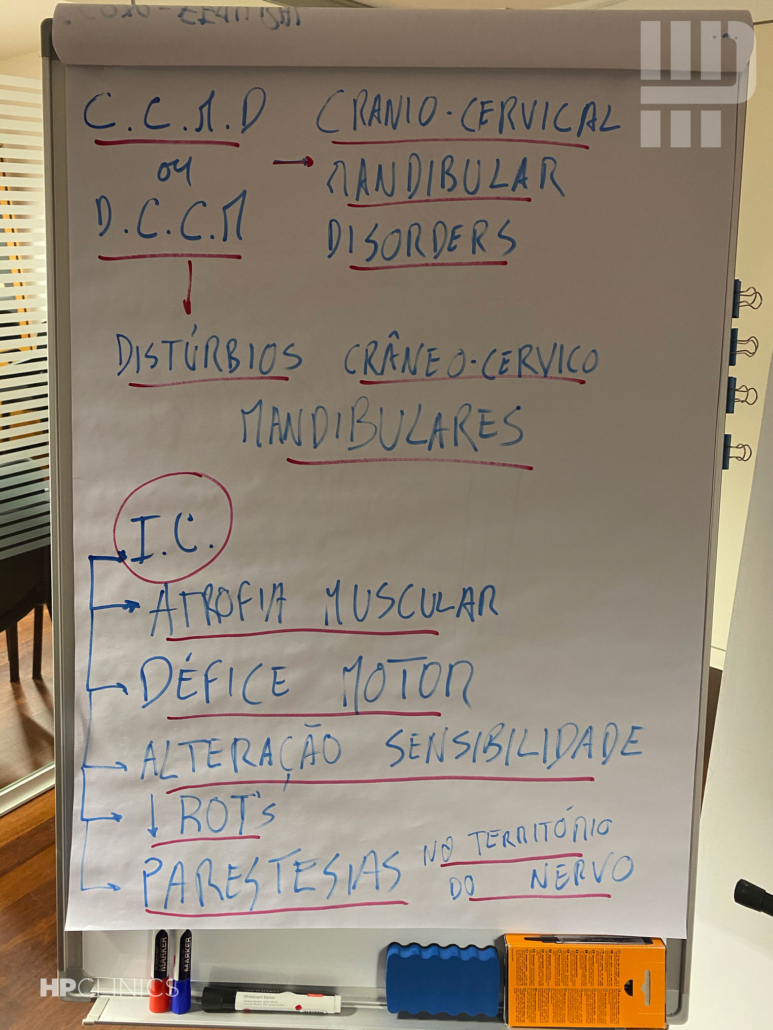 C.C.M.D
ou
D.C.C.M
CRANIO-CERVICAL
MANDIBULAR
DISORDERS
DISTÚRBIOS CRÂNEO-CERVICO
MANDIBULARES
I.C.
ATROFIA MUSCULAR
DÉFICE MOTOR
ALTERAÇÃO SENSIBILIDADE
↓ ROT's
PARESTESIAS NO TERRITÓRIO
DO NERVO
MARKER
MARKER
HPCLINICS